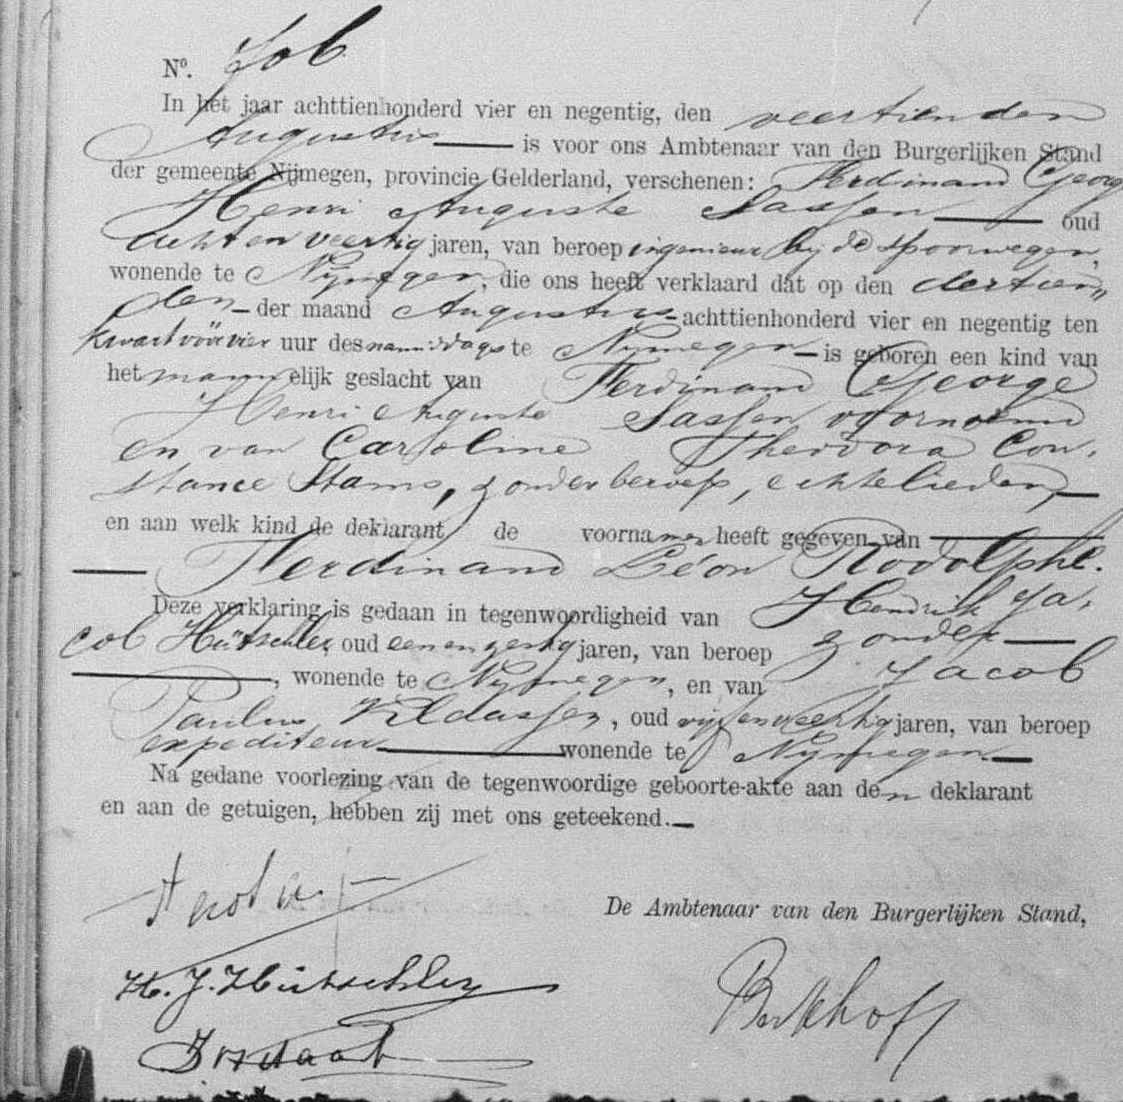 Nº. 706
In het jaar achttienhonderd vier en negentig, den veertienden
Augustus — is voor ons Ambtenaar van den Burgerlijken Stand
der gemeente Nijmegen, provincie Gelderland, verschenen: Ferdinand George
Henri Auguste Sassen — oud
achtenveertig jaren, van beroep ingenieur bij de spoorwegen,
wonende te Nijmegen, die ons heeft verklaard dat op den dertien„
den — der maand Augustus — achttienhonderd vier en negentig ten
kwart vóór vier uur des namiddags te Nijmegen — is geboren een kind van
het mannelijk geslacht van Ferdinand George
Henri Auguste Sassen voornoemd
en van Caroline Theodora Con„
stance Stams, zonder beroep, echtelieden, —
en aan welk kind de deklarant de voornamen heeft gegeven van —
— Ferdinand Léon Rodolphe.
Deze verklaring is gedaan in tegenwoordigheid van Hendrik Ja„
cob Hütschler oud eenenzestig jaren, van beroep zonder —
—, wonende te Nijmegen, en van Jacob
Paulus, oud vijfenveertig jaren, van beroep
expediteur — wonende te Nijmegen. —
Na gedane voorlezing van de tegenwoordige geboorte-akte aan den deklarant
en aan de getuigen, hebben zij met ons geteekend. —
De Ambtenaar van den Burgerlijken Stand,
H. J. Hütschler
Berkhoff